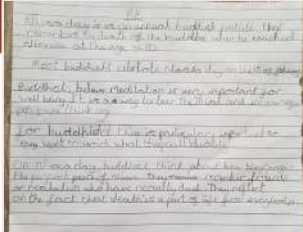 R.E
Nirvana day is an annual buddhist festival that
remembers the death of the buddha when he reached
Nirvana at the age of 80
Most buddhists celebrate Nirvana day on the 15 February
Buddhists believe meditation is very important for
well being it is a way to clear the mind and
positive thinking
For buddhists this is particulary important so
they want to avoid what they call
On Nirvana day buddhists think about how they can
the perfect peace of Nirvana They remember friends
or relatives who have recently died They reflect
on the fact that death is a part of life for everyone